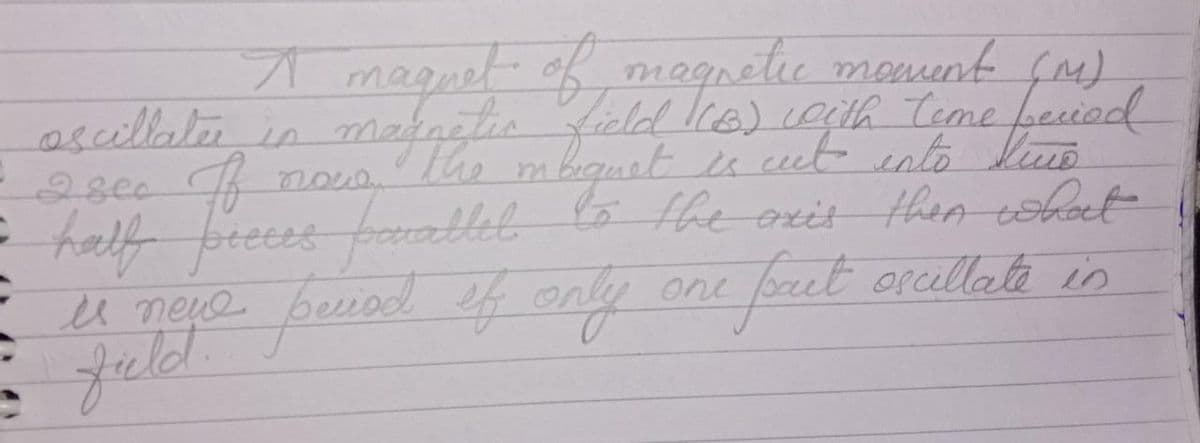 A magnet of magnetic moment (M)
oscillates in magnetic field (B) with Time period
2 sec If now, the magnet is cut into two
half pieces parallel to the axis then what
is new period if only one part oscillate in
field.